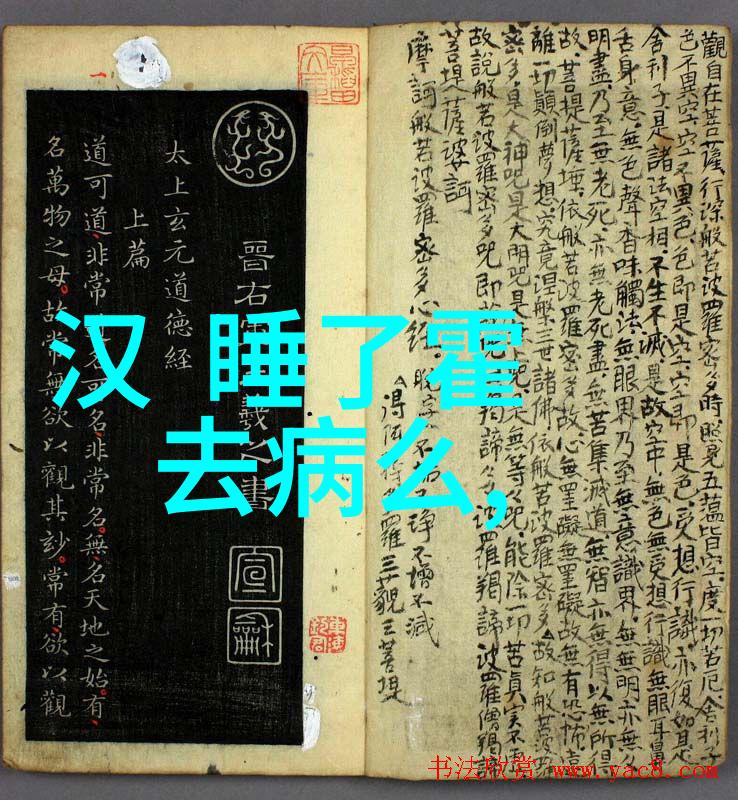 汉 睡了霍
去病么,
觀自在菩薩行深般若波羅密多時照見五蕴皆空度一切苦厄舍利子
色不異空空不異色色即是空空即是色受想行識亦復如是
舍利子是諸法空相不生不滅是故空中無色無受想行識無眼耳鼻
舌身意無色聲香味觸法無眼界乃至無意識界無無明亦無
明盡乃至無老死亦無老死盡無苦集滅道無智亦無得以無所得
故菩提薩埵依般若波羅密多故心無罣礙無罣礙故無有恐怖遠
離一切顛倒夢想究竟涅槃三世諸佛依般若波羅密多故知般若波
密多是大神咒是大明咒是無等々咒能除一切苦真实不虚
故說般若波羅密多咒即揭諦々波羅揭諦波羅僧揭諦
菩提薩婆訶
摩訶般若波羅密多心經 脱字不垢不淨不增不減
得阿耨多羅三藐三菩提
晉右軍羲之書
宣
龢
太上玄元道德經
上篇
道可道非常名可名非常名無名天地之始有
名萬物之母故常無欲以觀其妙常有欲以觀
书法欣赏 www.yac8.com